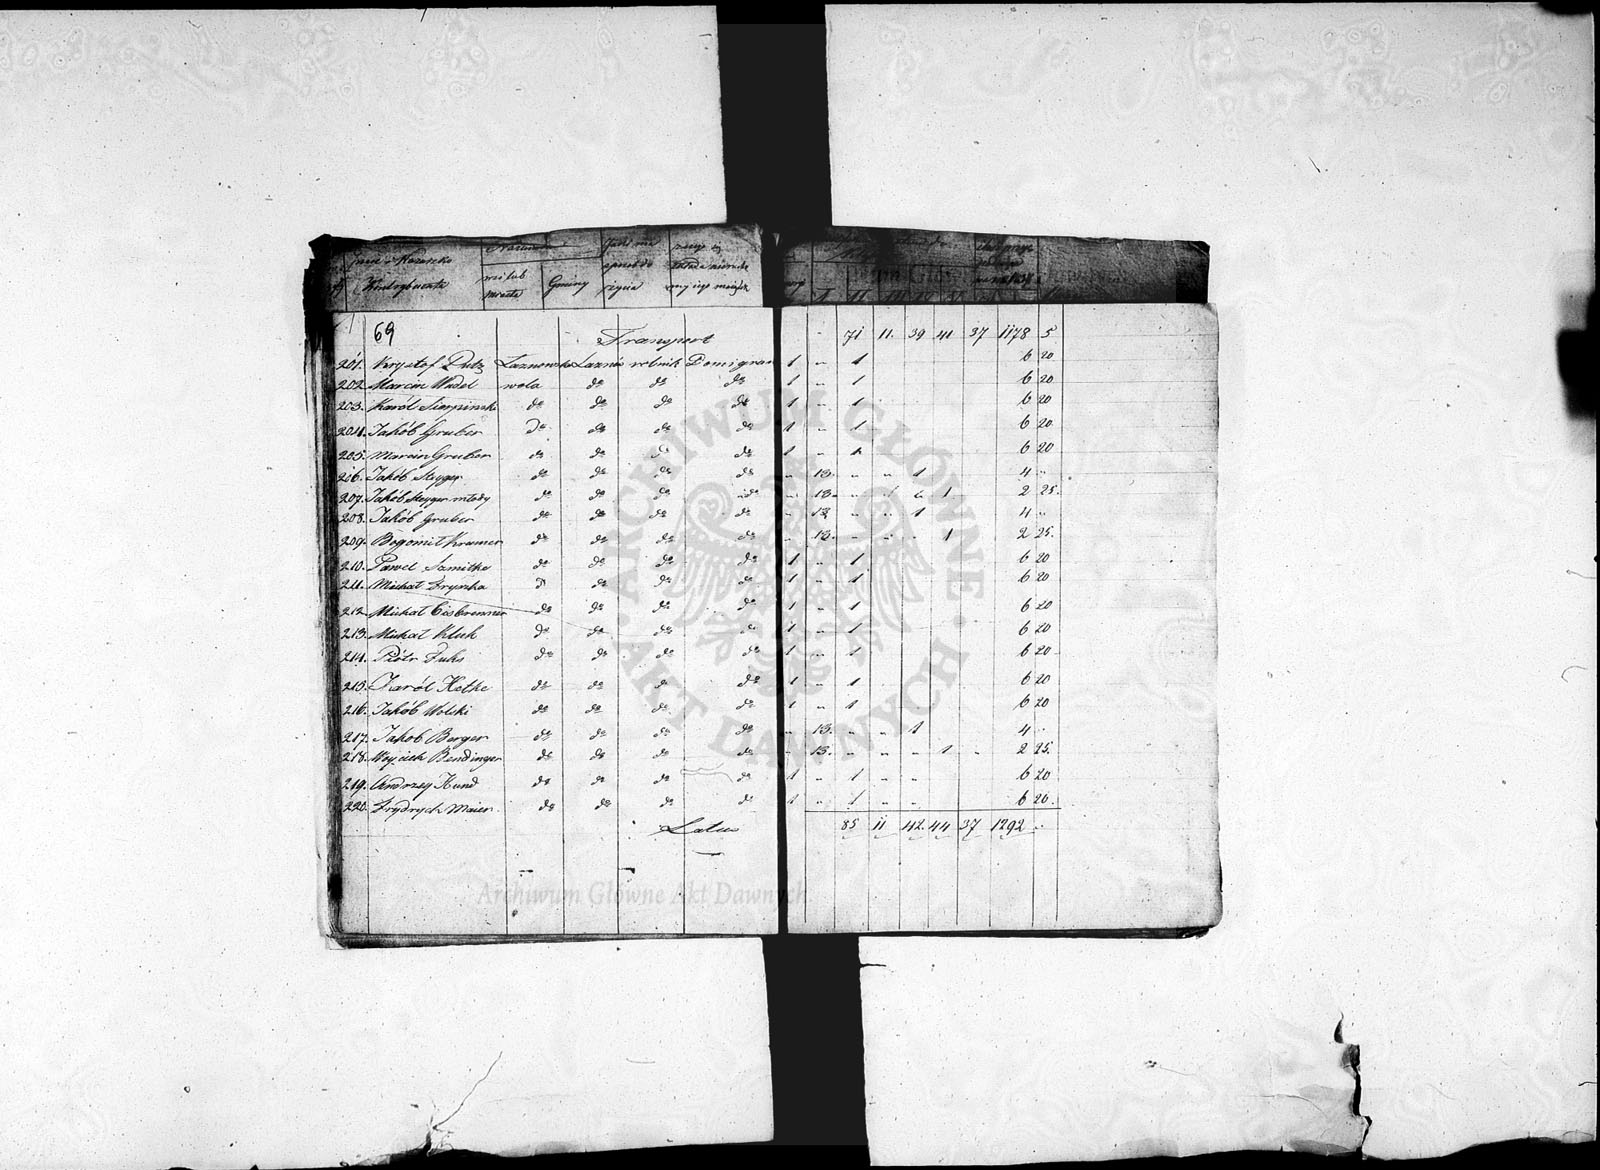 Imie i Nazwisko
Kontrybuenta
wsi lub
miasta
Gminy
sposób do
życia
69
Transport 71 11. 39 41 37 1178 5
201. Krysztof Dutz Łaznowska Łaznów rolnik 1 " 1 6 20
202. Marcin Wadel wola do do do 1 " 1 6 20
203. Karól Sierpinski do do do do 1 " 1 6 20
204. Jakób Gruber do do do do 1 " 1 6 20
205. Marcin Gruber do do do do 1 " 1 6 20
206. Jakób Steyger do do do do " 13. " " 1 4 "
207. Jakób Steyger młody do do do do " 13. " 1 2 25.
208. Jakób Gruber do do do do " 13. " " 1 4 "
209. Bogomił Kramer do do do do " 13. " " " 1 2 25.
210. Paweł Szmitke do do do do 1 " 1 6 20
211. Michał Frynka do do do do 1 " 1 6 20
212. Michał Eisbrenner do do do do 1 " 1 6 20
213. Michał Kluk do do do do 1 " 1 6 20
214. Piotr Fuks do do do do 1 " 1 6 20
215. Karól Hetke do do do do 1 " 1 6 20
216. Jakób Wolski do do do do 1 " 1 6 20
217. Jakob Berger do do do do " 13. " " 1 4 "
218. Woyciech Bendinger do do do do " 13. " " " 1 " 2 25.
219. Andrzey Hund do do do do 1 " 1 " " 6 20
220. Frydrych Maier do do do do 1 " 1 " " 6 20.
Latus 85 11 42 44 37 1292 "
ARCHIWUM GŁÓWNE · AKT DAWNYCH ·
Archiwum Główne Akt Dawnych